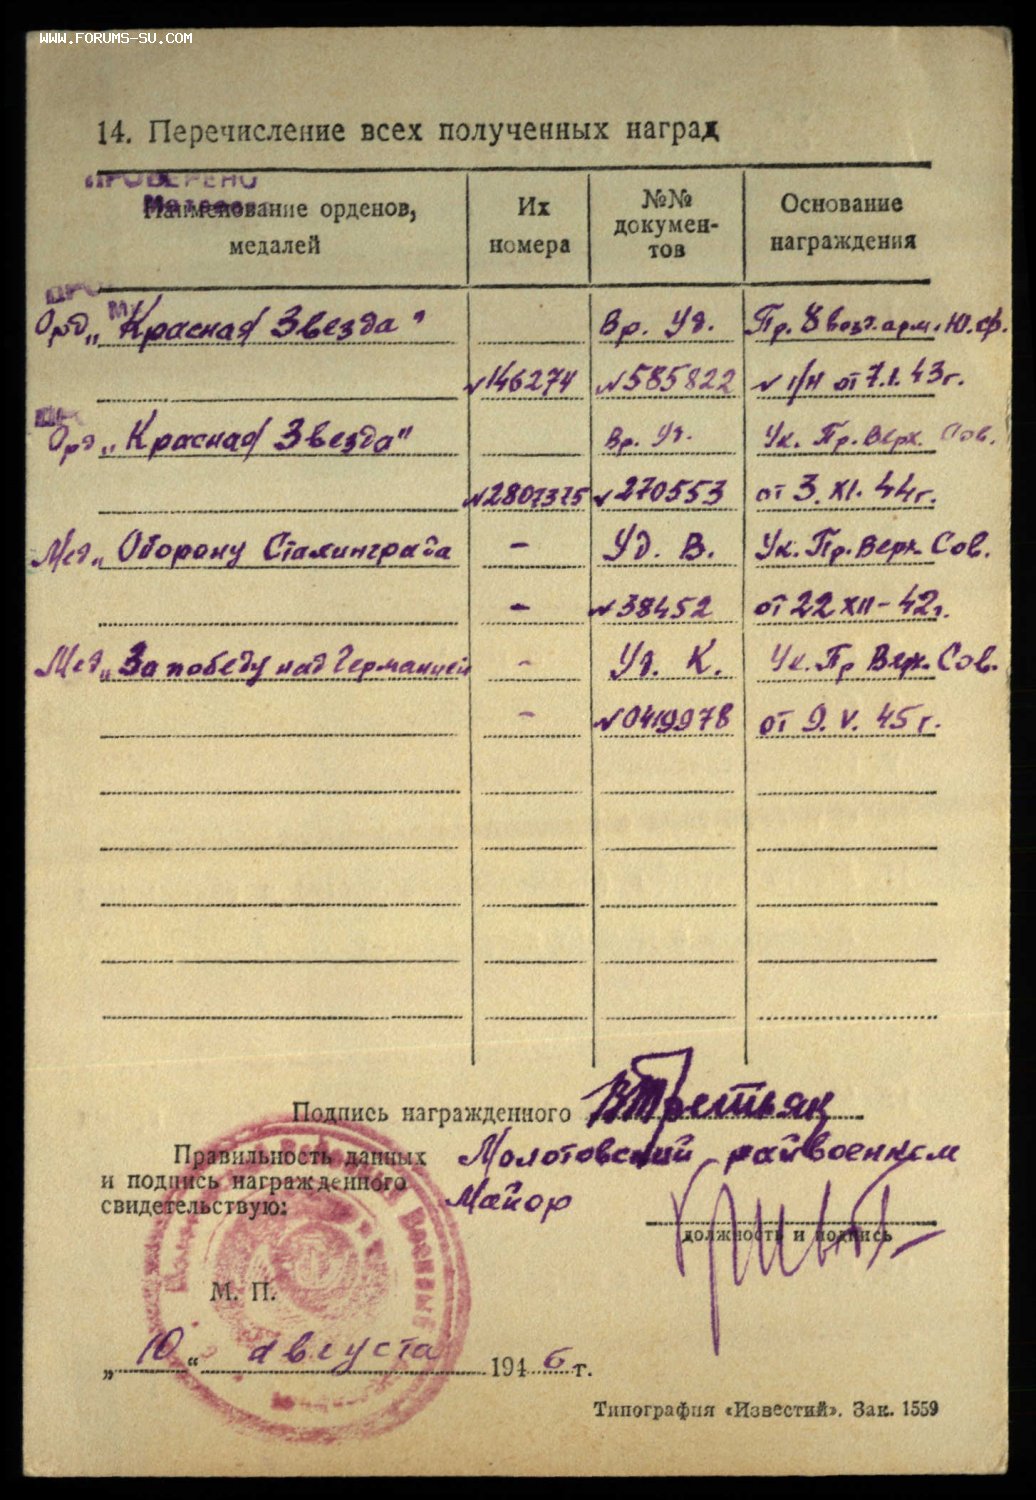 WWW.FORUMS-SU.COM
14. Перечисление всех полученных наград
ПРОВЕРЕНО
Наименование орденов, медалей
Их номера
№№ докумен-тов
Основание награждения
Орд. „Красная Звезда" Вр. Уд. Пр. 8 возд. арм. Ю. ф.
№146274 №585822 № 1/н от 7.1.43г.
Орд „Красная Звезда" Вр. Уд. Ук. Пр. Верх. Сов.
№2807375 №270553 от 3.XI.44г.
Мед „Оборону Сталинграда - Уд. В. Ук. Пр. Верх. Сов.
- №38452 от 22 XII-42г.
Мед „За победу над Германией - Уд. К. Ук. Пр Верх. Сов.
- №0419978 от 9.V.45г.
Подпись награжденного ВТретьяк
Правильность данных Молотовский райвоенком
и подпись награжденного Майор
свидетельствую:
должность и подпись
М. П.
„10" августа 1946г.
Типография «Известий». Зак. 1559